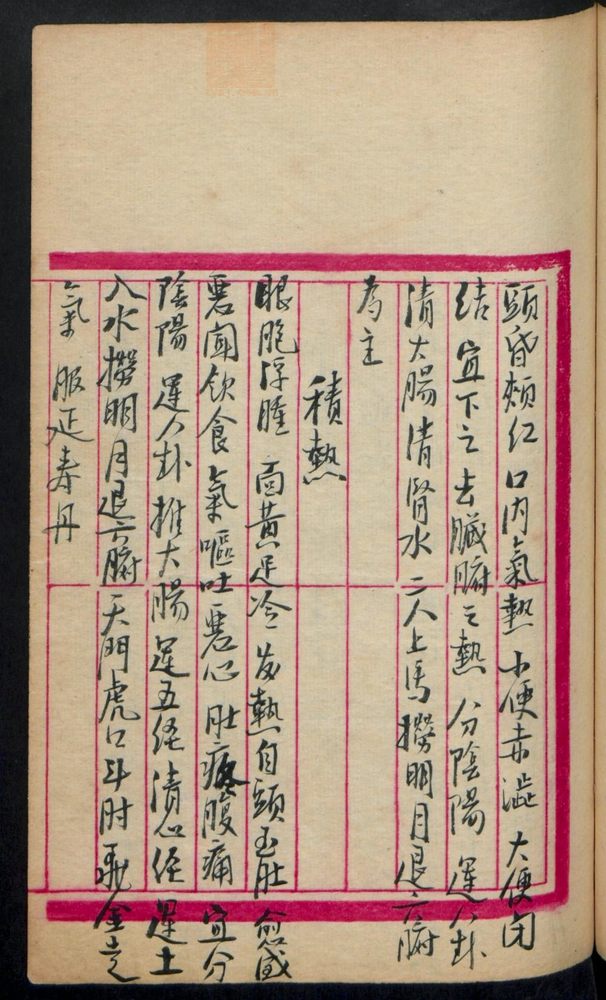 頭昏頰紅口内氣熱小便赤澁大便闭
结宜下之去臓腑之熱分陰陽運八卦
清大腸清腎水二人上馬撈明月退六腑
為主
積熱
眼胞浮腫面黄足冷发熱自頭至肚愈盛
悪闻飲食氣嘔吐悪心肚疼腹痛宜分
陰陽運八卦推大腸運五经清心经運土
入水撈明月退六腑天門虎口斗肘飛金走
氣服延寿丹